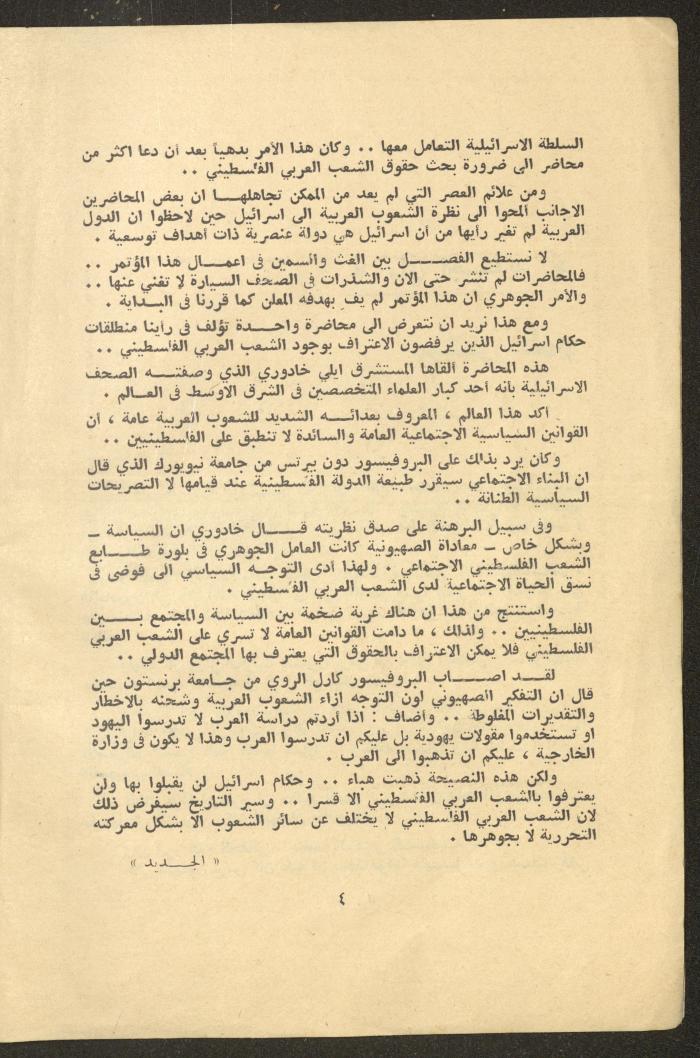 السلطة الاسرائيلية التعامل معها .. وكان هذا الأمر بدهياً بعد أن دعا اكثر من
محاضر الى ضرورة بحث حقوق الشعب العربي الفلسطيني ..
ومن علائم العصر التي لم يعد من الممكن تجاهلهـــا ان بعض المحاضرين
الاجانب ألمحوا الى نظرة الشعوب العربية الى اسرائيل حين لاحظوا ان الدول
العربية لم تغير رأيها من أن اسرائيل هي دولة عنصرية ذات أهداف توسعية .
لا نستطيع الفصــــل بين الغث والسمين فى اعمـــال هذا المؤتمر ..
فالمحاضرات لم تنشر حتى الآن والشذرات فى الصحف السيارة لا تغني عنها ..
والأمر الجوهري ان هذا المؤتمر لم يف بهدفه المعلن كما قررنا فى البـــداية .
ومع هذا نريد ان نتعرض الى محاضرة واحـــدة تؤلف فى رأينا منطلقات
حكام اسرائيل الذين يرفضون الاعتراف بوجود الشعب العربي الفلسطيني ..
هذه المحاضرة ألقاها المستشرق ايلي خادوري الذي وصفتـــه الصحف
الاسرائيلية بانه أحد كبار العلماء المتخصصين فى الشرق الاوسط فى العـــالم .
أكد هذا العالم ، المعروف بعدائـــه الشديد للشعوب العربية عامة ، أن
القوانين السياسية الاجتماعية العامة والسائدة لا تنطبق على الفلسطينيين ..
وكان يرد بذلك على البروفيسور دون بيرتس من جامعة نيويورك الذي قال
ان البناء الاجتماعي سيقرر طبيعة الدولة الفلسطينية عند قيامها لا التصريحات
السياسية الطنانة ..
وفى سبيل البرهنة على صدق نظريته قـــال خادوري ان السياسة ــ
وبشكل خاص ــ معاداة الصهيونية كانت العامل الجوهري فى بلورة طـــابع
الشعب الفلسطيني الاجتماعي . ولهذا أدى التوجـه السياسي الى فوضى فى
نسق الحياة الاجتماعية لدى الشعب العربي الفلسطيني .
واستنتج من هذا ان هناك غربة ضخمة بين السياسة والمجتمع بـــين
الفلسطينيين .. ولذلك ، ما دامت القوانين العامة لا تسري على الشعب العربي
الفلسطيني فلا يمكن الاعتراف بالحقوق التي يعترف بها المجتمع الدولي ..
لقـــد اصـــاب البروفيسور كارل الروي من جـامعة برنستون حين
قال ان التفكير الصهيوني لون التوجه ازاء الشعوب العربية وشحنه بالاخطار
والتقديرات المغلوطة .. وأضاف : اذا أردتم دراسة العرب لا تدرسوا اليهود
او تستخدموا مقولات يهودية بل عليكم ان تدرسوا العرب وهذا لا يكون فى وزارة
الخارجية ، عليكم ان تذهبوا الى العرب .
ولكن هذه النصيحة ذهبت هباء .. وحكام اسرائيل لن يقبلوا بها ولن
يعترفوا بالشعب العربي الفلسطيني الا قسرا .. وسير التاريخ سيفرض ذلك
لان الشعب العربي الفلسطيني لا يختلف عن سائر الشعوب الا بشكل معركته
التحررية لا بجوهرها .
« الجـــديد »
٤